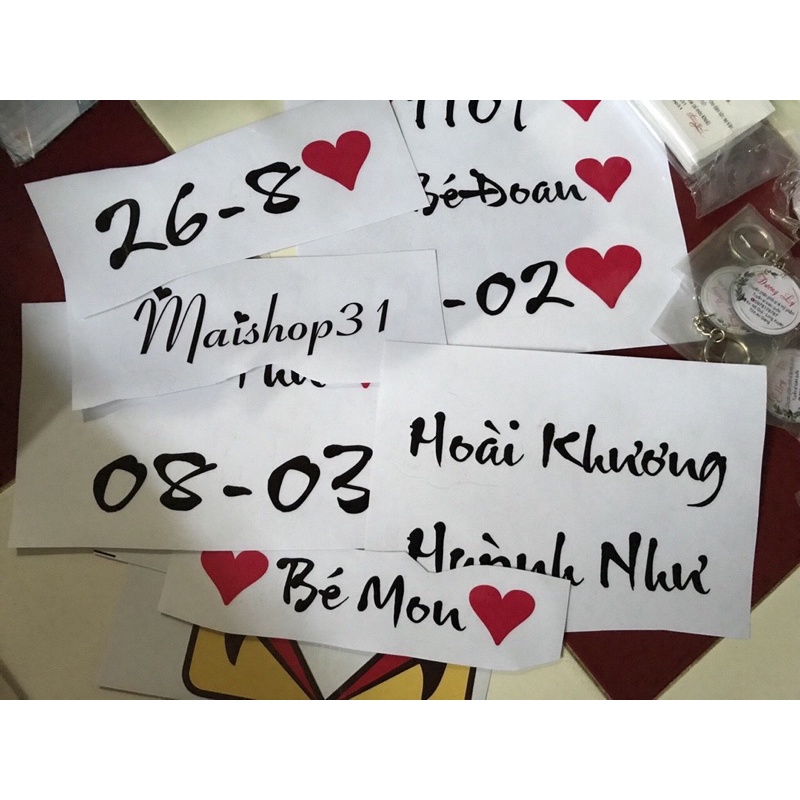 26-8
Bé Đoan
-02
Maishop31
08-03
Hoài Khương
Huỳnh Như
Bé Mon
Dương Lý